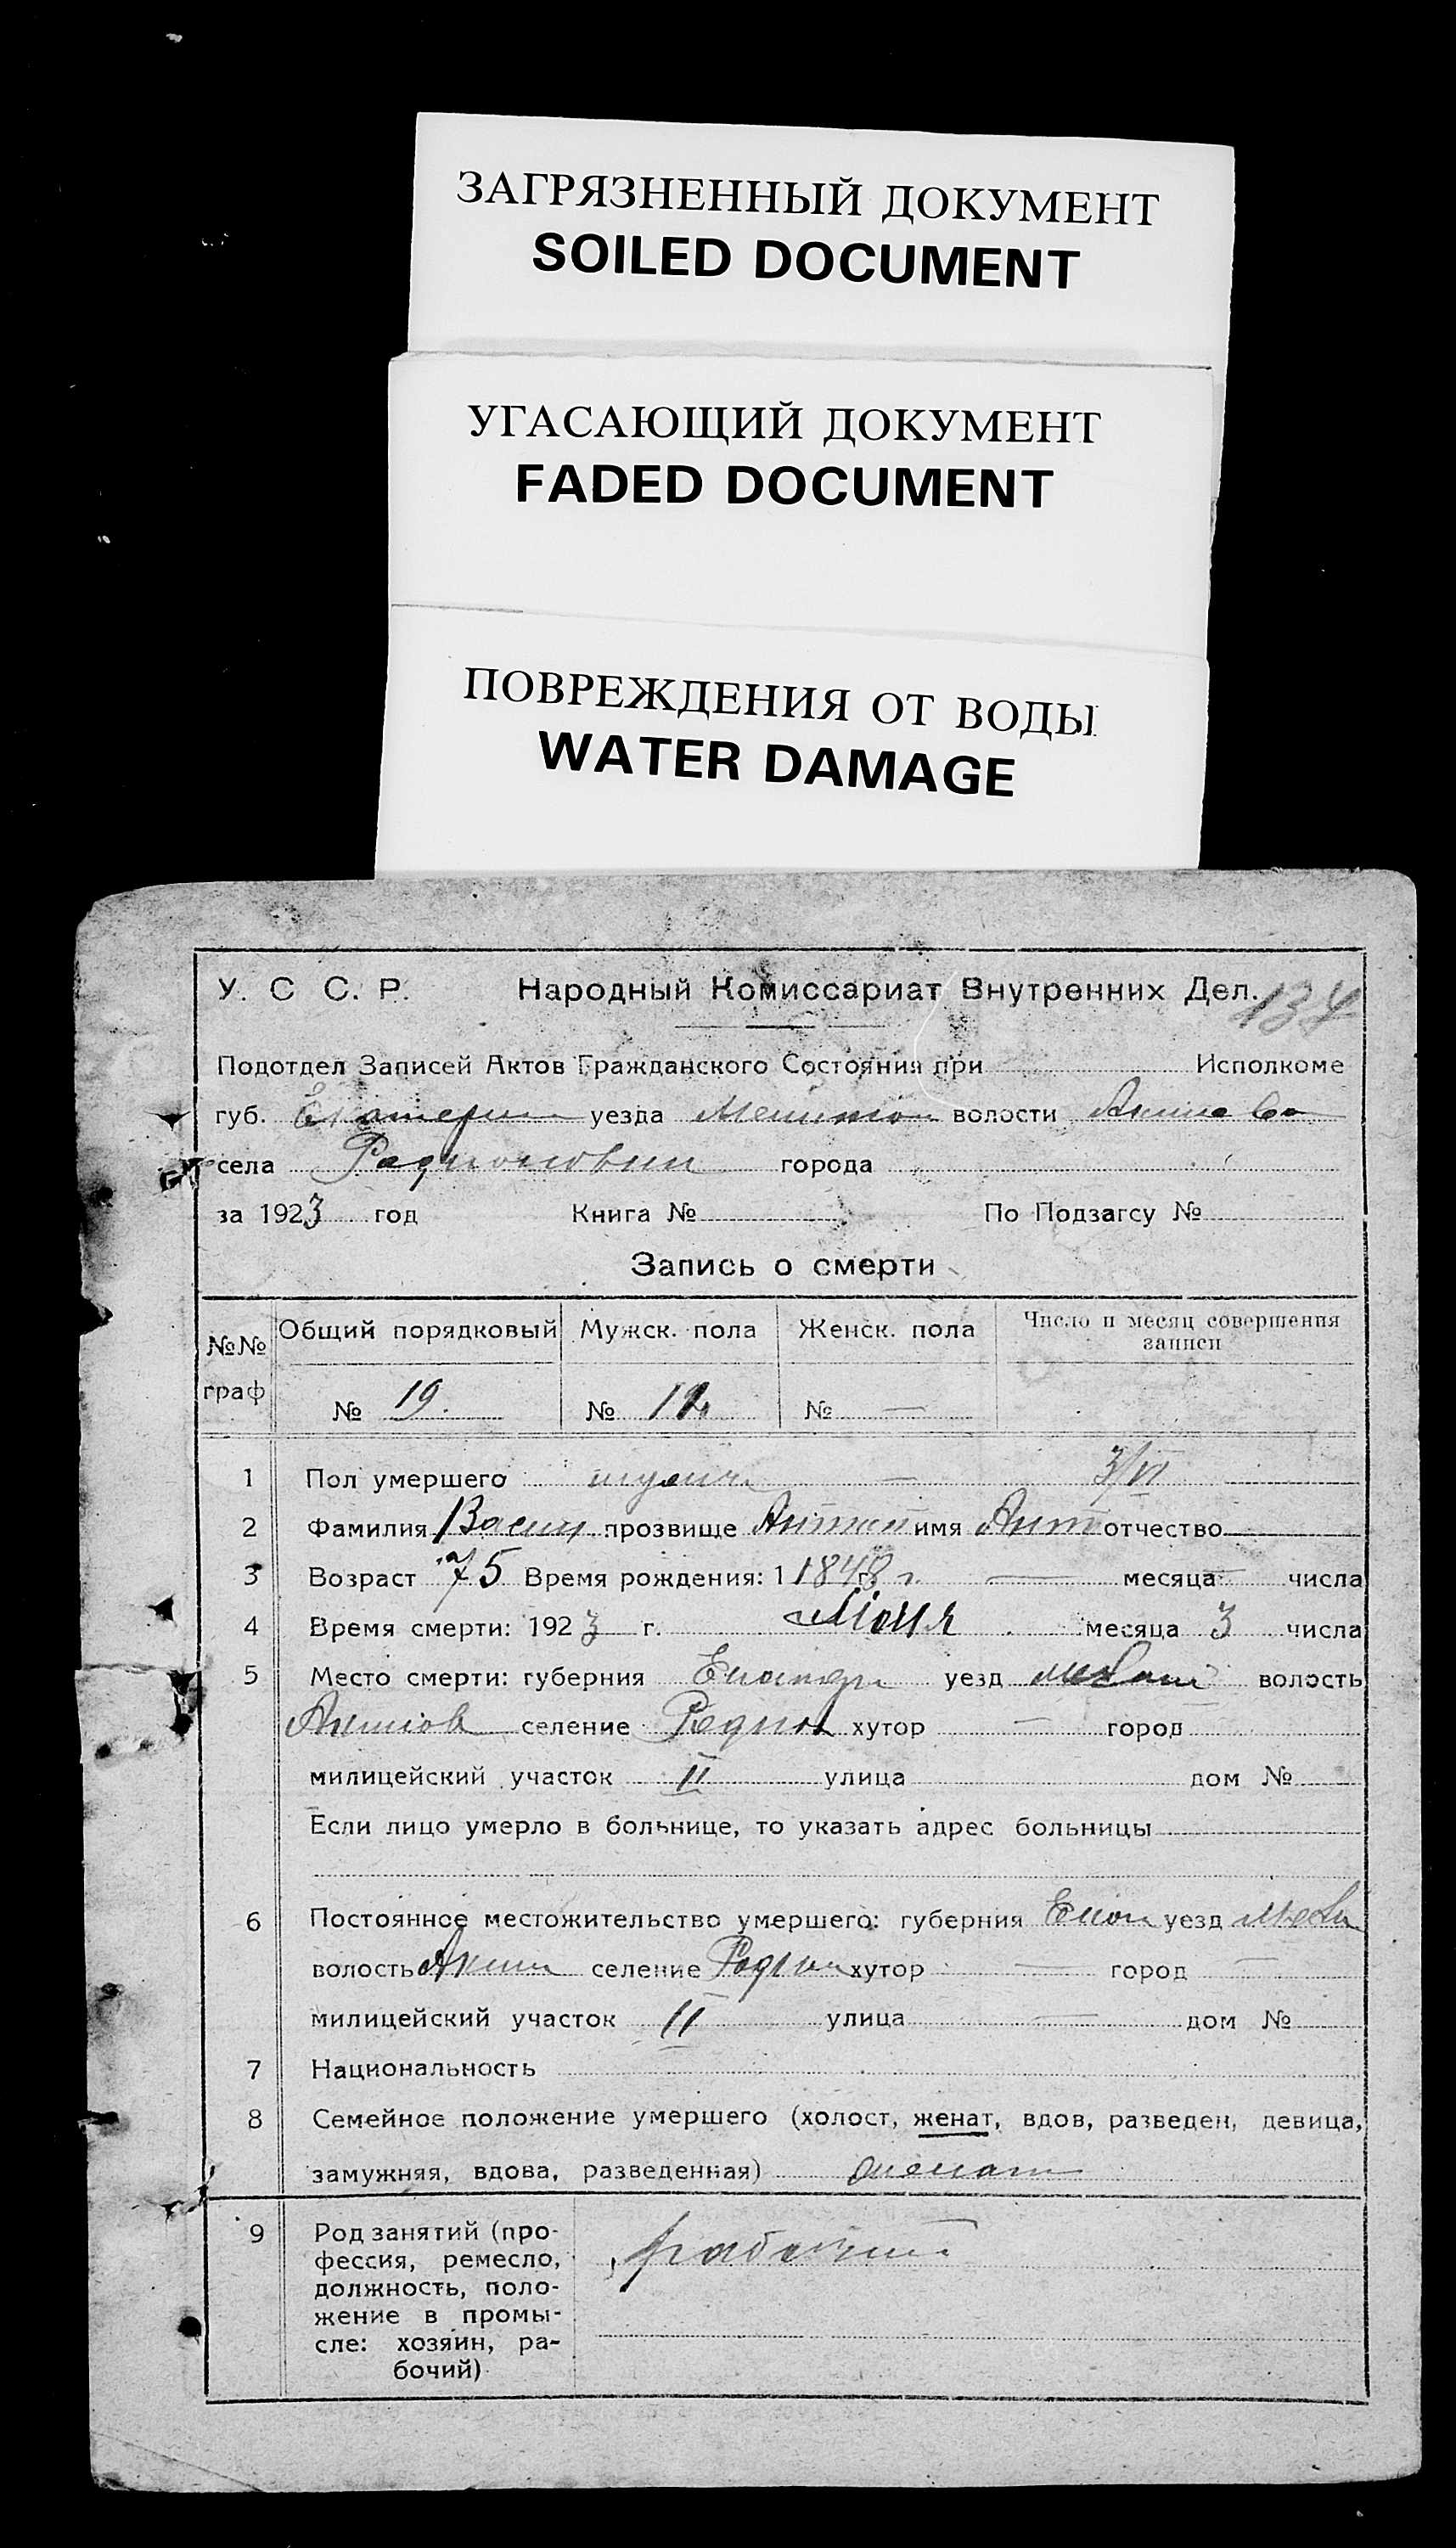 ЗАГРЯЗНЕННЫЙ ДОКУМЕНТ
SOILED DOCUMENT
УГАСАЮЩИЙ ДОКУМЕНТ
FADED DOCUMENT
ПОВРЕЖДЕНИЯ ОТ ВОДЫ
WATER DAMAGE
У. С С. Р. Народный Комиссариат Внутренних Дел. 134
Подотдел Записей Актов Гражданского Состояния при Исполкоме
губ. Екатерин уезда волости
села города
за 1923 год Книга № По Подзагсу №
Запись о смерти
№№ граф Общий порядковый Мужск. пола Женск. пола Число и месяц совершения записи
№ 19. № 12 № —
1 Пол умершего мужск — 3/VI
2 Фамилия прозвище имя Ант отчество
3 Возраст 75 Время рождения: 1 1848 г. — месяца — числа
4 Время смерти: 1923 г. Июня месяца 3 числа
5 Место смерти: губерния уезд волость
Акимов селение Родион хутор — город
милицейский участок II улица дом №
Если лицо умерло в больнице, то указать адрес больницы
6 Постоянное местожительство умершего: губерния уезд
волость Аким селение Родион хутор — город —
милицейский участок II улица — дом №
7 Национальность
8 Семейное положение умершего (холост, женат, вдов, разведен, девица,
замужняя, вдова, разведенная) женат
9 Род занятий (про-
фессия, ремесло,
должность, поло-
жение в промы-
сле: хозяин, ра-
бочий)
рабочий